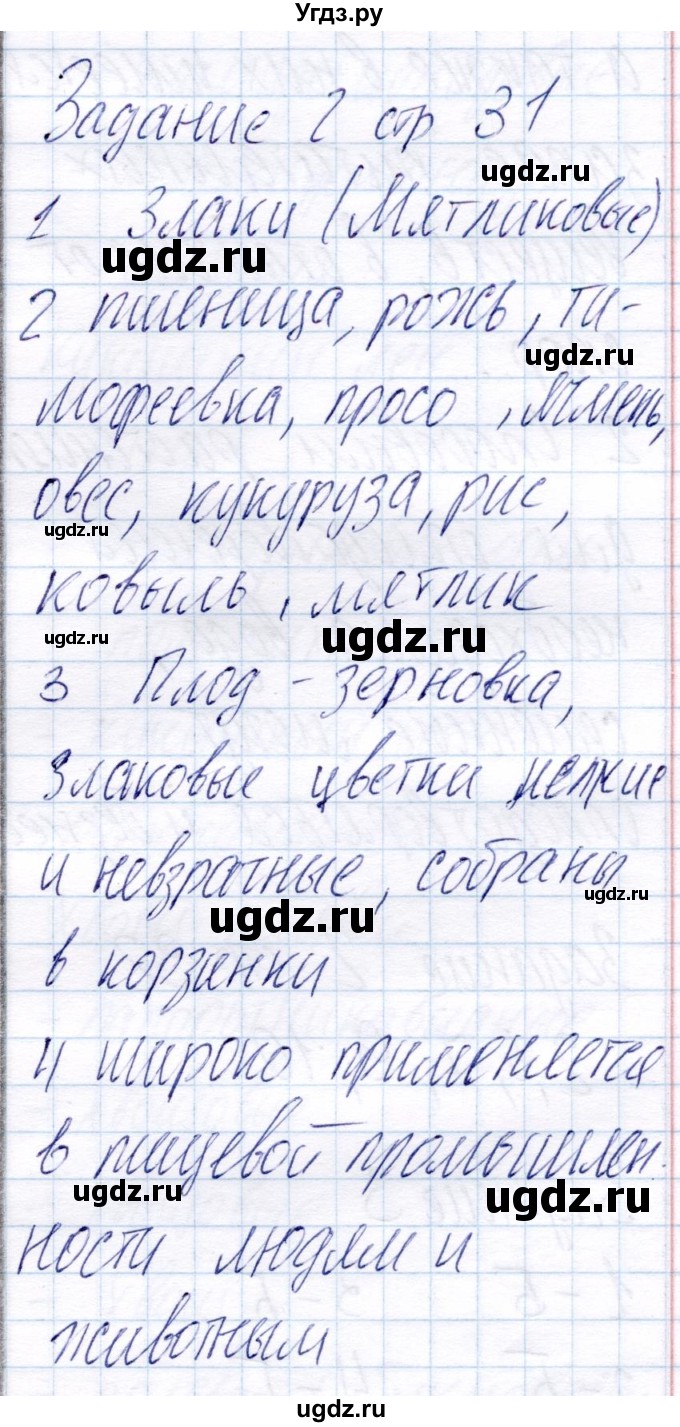 Угдз.ру
Задание 2 стр 31
ugdz.ru
1 Злаки (Мятликовые)
ugdz.ru
2 пшеница, рожь, ти-
ugdz.ru
мофеевка, просо, ячмень,
овес, кукуруза, рис,
ugdz.ru
ковыль, мятлик
ugdz.ru ugdz.ru
3 Плод - зерновка,
Злаковые цветки мелкие
и невзрачные, собраны
ugdz.ru ugdz.ru
в корзинки
4 широко применяется
в пищевой промышлен-
ugdz.ru ugdz.ru
ности людям и
животным
ugdz.ru